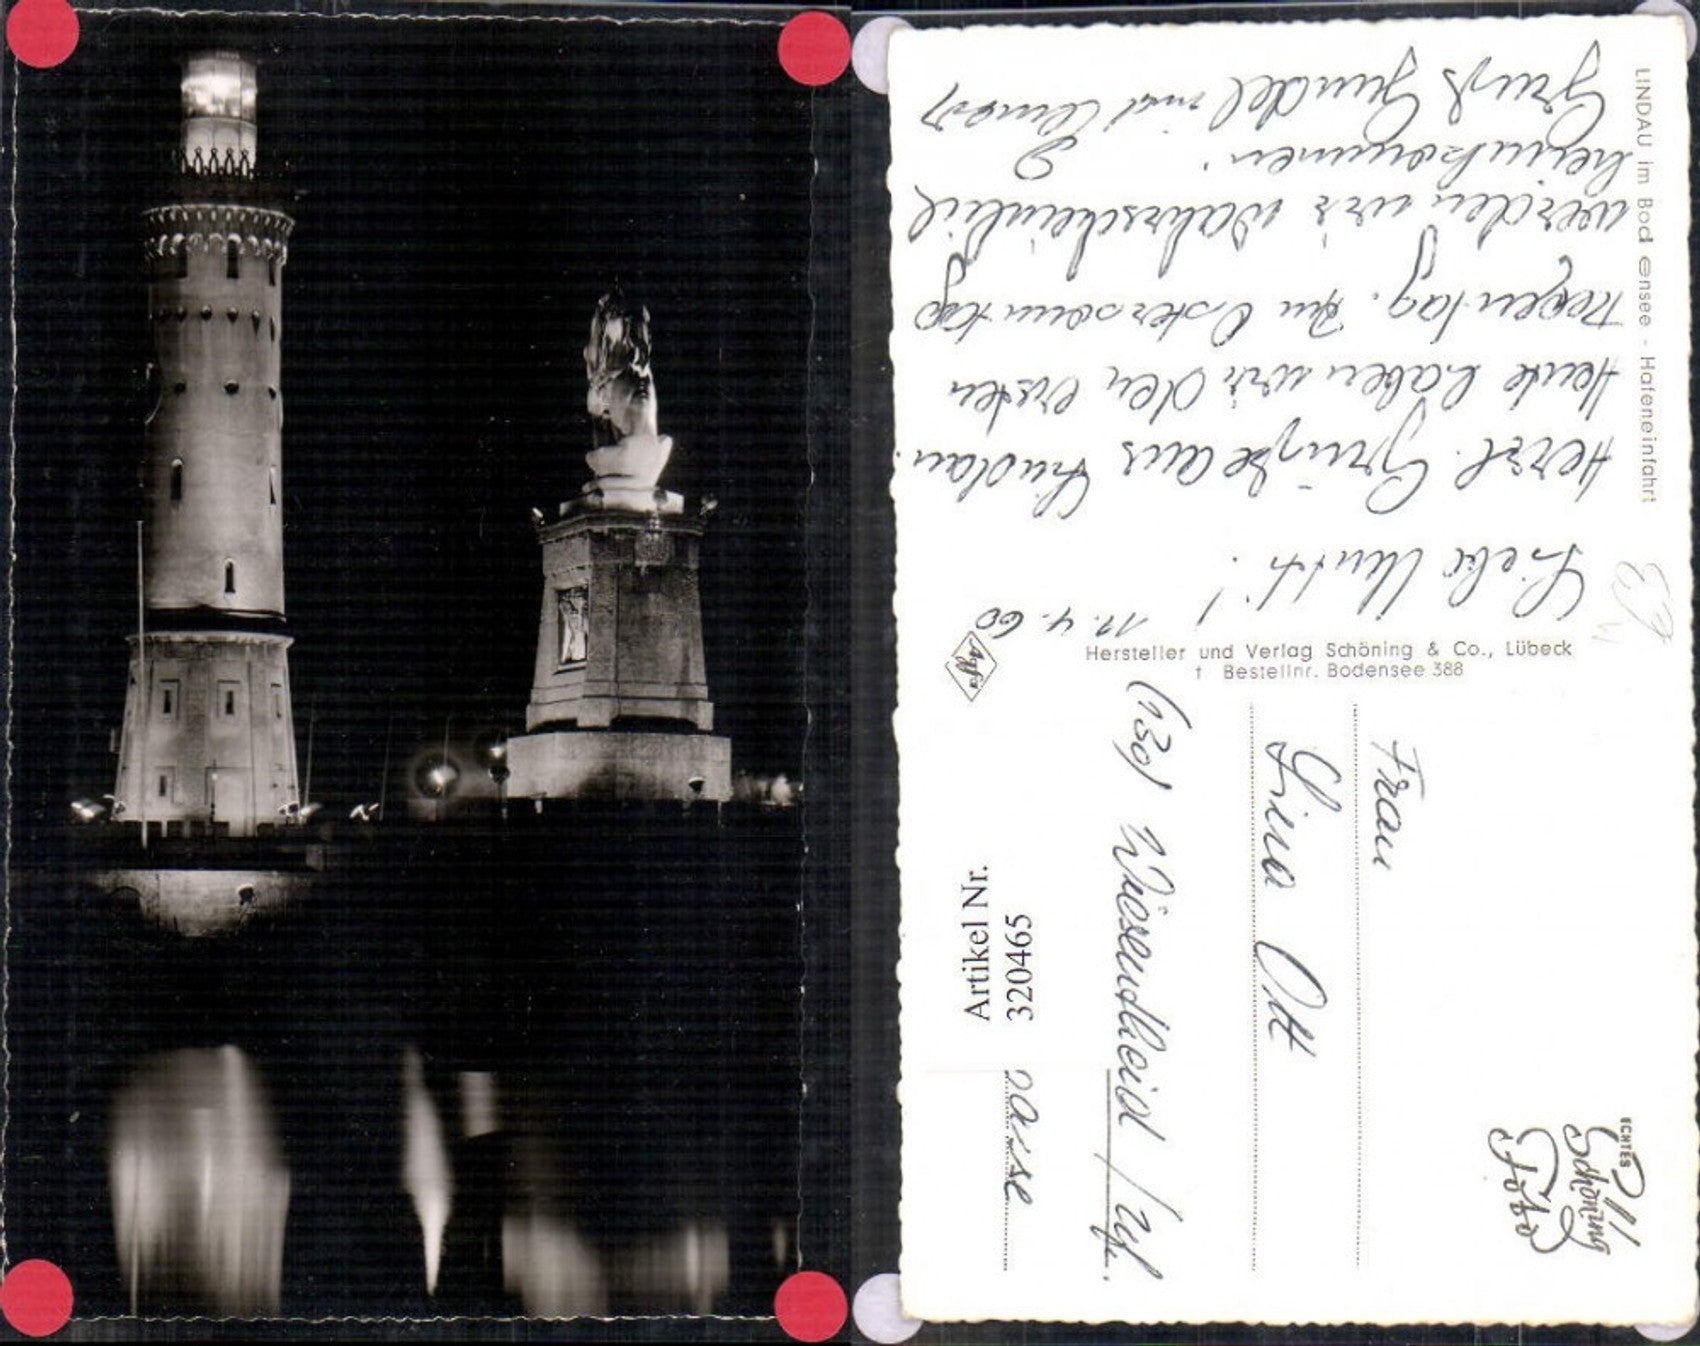 LINDAU im Bodensee - Hafeneinfahrt
11.4.60
Liebe !
Herzl. Grüße aus Lindau.
Heute haben wir den ersten
Regentag. Am Ostersonntag
werden wir wahrscheinlich
heimkommen.
Gruß Gundel und
Agfa
Hersteller und Verlag Schöning & Co., Lübeck
† Bestellnr. Bodensee 388
Frau
Lina Ott
(13a) Wiesentheid /Ufr.
Artikel Nr.
320465
ECHTES
Schöning
Foto